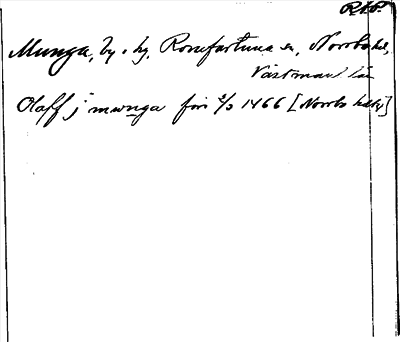 RAP.
Munga, by o hg, Romfartuna sn, Norrbo hd,
Västman län
Olaff j mwnga före 2/3 1466 [Norrbo hd]